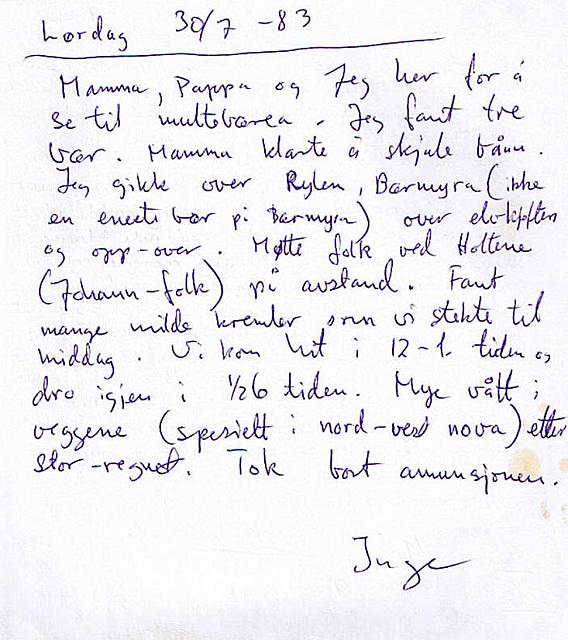 Lørdag 30/7 -83
Mamma, Pappa og Jeg her for å
se til multebærea. Jeg fant tre
bær. Mamma klarte å skjule bånn.
Jeg gikk over Rylen, Bærmyra (ikke
en eneste bær på Bærmyra) over
og opp-over. Møtte folk ved Holtene
(Johann-folk) på avstand. Fant
mange milde kremler som vi stekte til
middag. Vi kom hit i 12-1 tiden og
dro igjen i 1/2 6 tiden. Mye vått i
veggene (spesielt i nord-vest nova) etter
stor-regnet. Tok bort ammunsjonen.
Inge